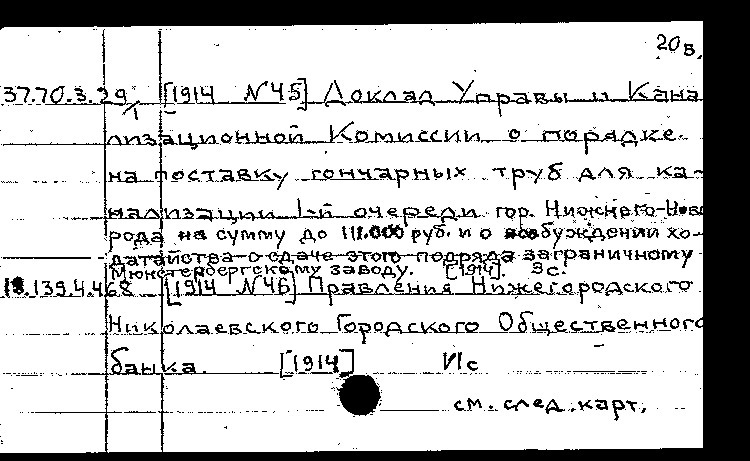 20 в.
37.70.3.29/1 [1914 N45] Доклад Управы и Кана
лизационной Комиссии о порядке
на поставку гончарных труб для ка-
нализации 1-й очереди гор. Нижнего-Нов
рода на сумму до 111.000 руб. и о возбуждении хо-
датайства о сдаче этого подряда заграничному
Мюнстербергскому заводу. [1914]. 3 с.
18.139.4.468 [1914 N46] Правления Нижегородского
Николаевского Городского Общественного
банка. [1914] Ис
см. след. карт.